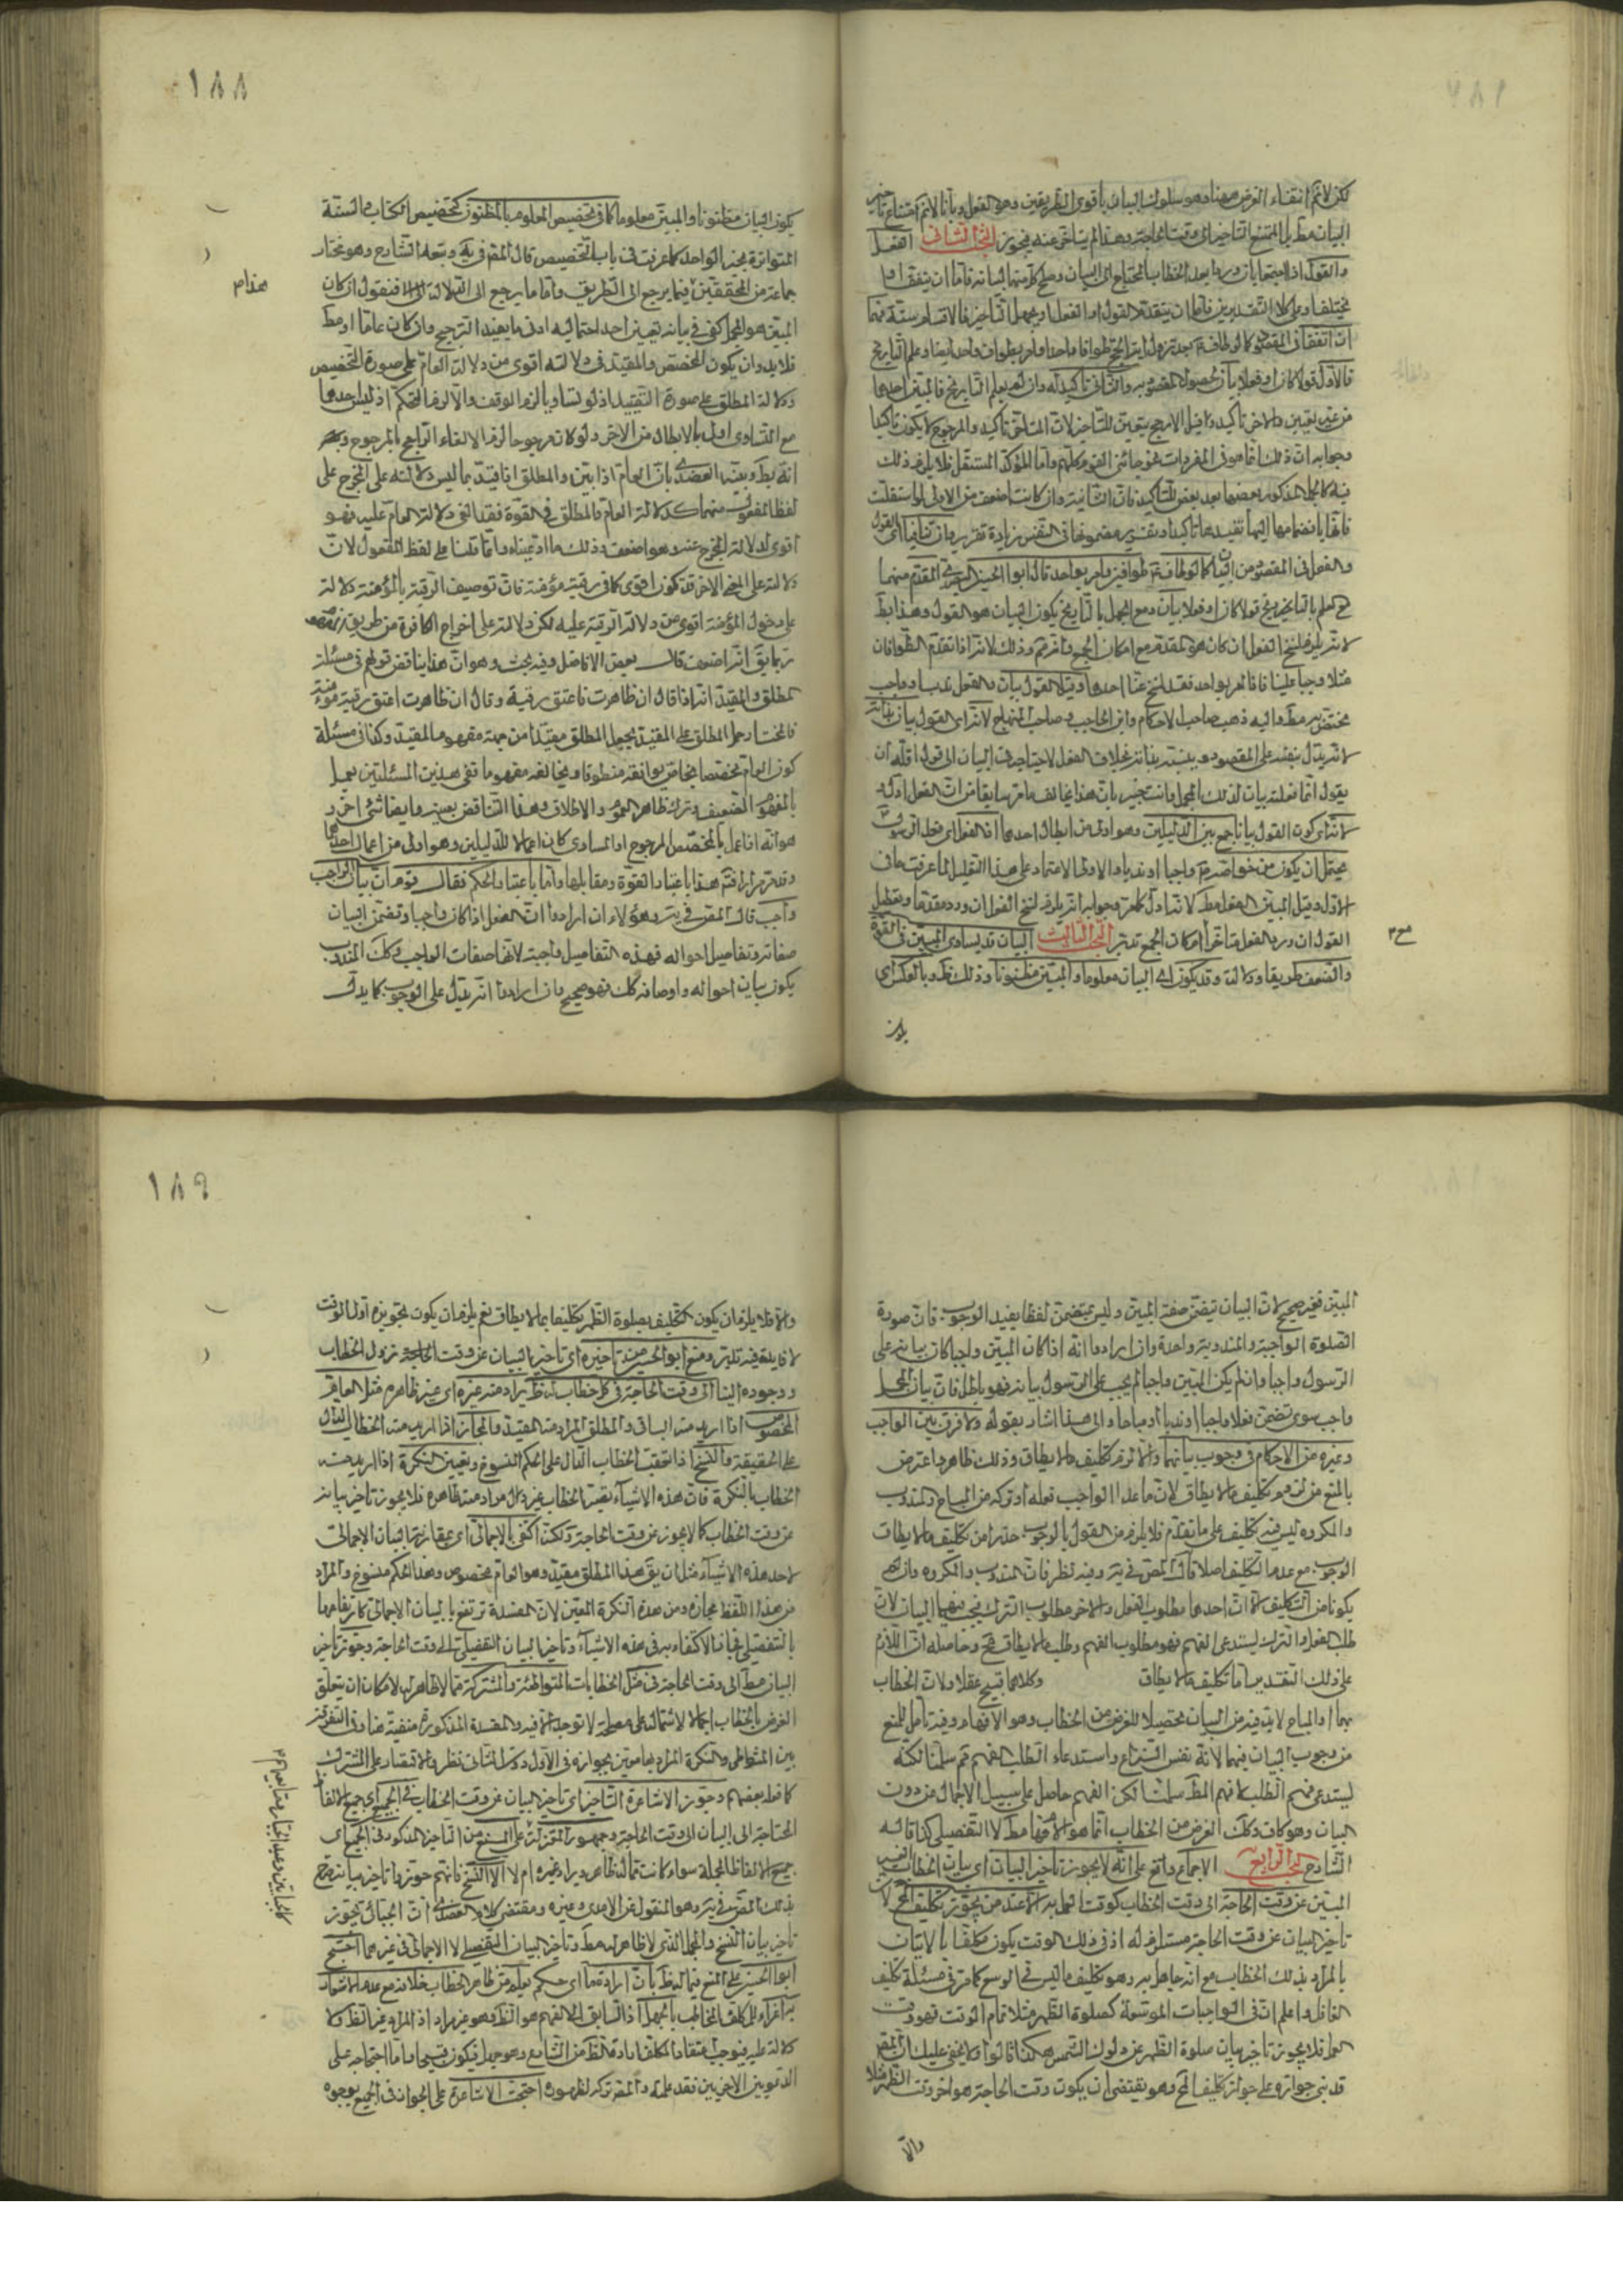 لكن لا نم انتفاء الغرض ههنا وهو سلوك البيان بأقوى الطريقين وهو الفعل وبأنا لا نم امتناع تأخير
البيان مط بل الممتنع التأخير الى وقت الحاجة وهذا لم يتأخر عنه فيجوز البحث الثاني الفعل
والقول اذا اجتمعا بان وردا بعد الخطاب المحتاج الى البيان وصلح كل منهما لبيانه فاما ان يتفقا او
يختلفا وعلى كلا التقديرين فاما ان يتقدم القول او الفعل او يجهل التأخير فالاقسام ستة فهما
ان اتفقا في المقصود كما لو طاف بعد نزول اية الحج طوافا واحدا وامر بطواف واحد ايضا وعلم التاريخ
فالاول قولا كان او فعلا بيان لحصول المقصود به والثاني تأكيد له وان لم يعلم التاريخ فالمبين احدهما
من غير تعيين والاخر تأكيد وقيل الارجح يتعين للتأخير لان المتأخر تأكيد والمرجوح لا يكون تأكيدا
وجوابه ان ذلك انما هو في المفردات نحو جائني القوم كلهم واما المؤكد المستقل فلا يلزم ذلك
فيه كالجمل المذكور بعضها بعد بعض للتأكيد فان الثانية وان كانت اضعف من الاولى لو استقلت
فانها بانضمامها اليها تفيدها تأكيدا وتقرير مضمونها في النفس زيادة تقرير وان تنافيا اي القول
والفعل في المقصود من البيان كما لو طاف طوافين وامر بواحد قال ابو الحسين البصري المقدم منهما
مع العلم بالتاريخ قولا كان او فعلا بيان ومع الجهل بالتاريخ يكون البيان هو القول وهذا بط
لانه يلزم نسخ الفعل ان كان هو المقدم مع امكان الجمع وانه غير لازم وذلك لانه اذا تقدم الطوافان
مثلا وجبا علينا فاذا امر بواحد فقد نسخ عنا احدهما وقيل القول بيان والفعل ندب او واجب
مختص به مط واليه ذهب صاحب الاحكام وابن الحاجب وصاحب المنهاج لانه اي القول بيان بذاته
لانه يدل بنفسه على المقصود وبينه بذاته بخلاف الفعل لاحتياجه في البيان الى قول اقله ان
يقول انما فعلته بيان لذلك المجمل وانت خبير بان هذا يخالف ما مر سابقا من ان الفعل ادل و
لانه اي كون القول بيانا جمع بين الدليلين وهو اولى من ابطال احدهما اذ الفعل اي فعل الرسول ص
يحتمل ان يكون من خواصه واجبا او ندبا والاولى الاعتماد على هذا التعليل لما عرفت ما في
الاول وقيل المبين الفعل مط لانه ادل كما مر وجوابه انه يلزم نسخ الفعل ان ورد مقدما وتعطيل
القول ان ورد الفعل متأخرا مع امكان الجمع تدبر البحث الثالث البيان قد يساوي المبين في القوة
والضعف طريقا ودلالة وقد يكون اي البيان معلوما والمبين مظنونا وذلك ظ وبالعكس اي
يكون
١٨٨
يكون البيان مظنونا والمبين معلوما كما في تخصيص المعلوم بالمظنون كتخصيص الكتاب والسنة
المتواترة بخبر الواحد كما عرفت في باب التخصيص قال المص في يه وتبعه الشارح وهو مختار
جماعة من المحققين هذا فيما يرجع الى الطريق واما ما يرجع الى الدلالة فنقول ان كان
المبين هو المجمل كفى في بيانه تعيين احد احتماليه ادنى ما يفيد الترجيح وان كان عاما او مط
فلا بد وان يكون المخصص والمقيد في دلالته اقوى من دلالة العام على صورة التخصيص
ودلالة المطلق على صورة التقييد اذ لو تساويا لزم الوقف والا لزم التحكم اذ ليس احدهما
مع التساوي اولى بالابطال من الاخر ولو كان مرجوحا لزم الالغاء الراجح بالمرجوح وهو
انه بط وبينه العضدي بان العام اذا بين والمطلق اذا قيد بما ليس دلالته على المخرج على
لفظ المفعول منهما كدلالة العام والمطلق في القوة فقد الغى دلالة العام عليه فهو
اقوى لدلالة المخرج عنه وهو اضعف وذلك ما ادعيناه وانما قلنا على لفظ المفعول لان
دلالته على المعنى الاخر قد تكون اقوى كما في رقبة مؤمنة فان توصيف الرقبة بالمؤمنة دلالة
على دخول المؤمنة اقوى من دلالة الرقبة عليه لكن دلالته على اخراج الكافرة من طريق مفهومه
ربما يق انه اضعف قال بعض الافاضل وفيه بحث وهو ان هذا يناقض قولهم في مسئلة
المطلق والمقيد انه اذا قال ان ظاهرت فاعتق رقبة وقال ان ظاهرت اعتق رقبة مؤمنة
فالمختار حمل المطلق على المقيد بجعل المطلق مقيدا من جهة مفهوم المقيد وكذا في مسئلة
كون العام مخصصا بخاص يوافقه منطوقا ويخالفه مفهوما ففي هذين المسئلتين يعمل
بالمفهوم الضعيف وترك ظاهر العموم والاطلاق وهذا التناقض بعينه وايضا شيء اخر و
هو انه اذا عمل بالمخصص المرجوح او المساوي كان اعمالا للدليلين وهو اولى من اعمال احدهما
وقد مر مرارا فتم هذا باعتبار القوة ومقابلها واما باعتبار الحكم فقال قوم ان بيان الواجب
واجب قال المص في يه وهؤلاء ان ارادوا ان الفعل اذا كان واجبا وتضمن البيان
صفاته وتفاصيل احواله فهذه التفاصيل واجبة لانها صفات الواجب وكك المندوب
يكون بيان احواله واوصافه كك فهو صحيح وان ارادوا انه يدل على الوجوب كما يدل
المبين فغير صحيح لان البيان تضمن صفة المبين وليس يتضمن لفظا يفيد الوجوب فان صورة
الصلوة الواجبة والمندوبة واحدة وان ارادوا انه اذا كان المبين واجبا كان بيانه على
الرسول واجبا وان لم يكن المبين واجبا لم يجب على الرسول بيانه فهو باطل فان بيان المجمل
واجب سوى تضمن فعلا واجبا او ندبا او مباحا والى هذا اشار بقوله ولا فرق بين الواجب
وغيره من الاحكام في وجوب بيانهما والا لزم تكليف ما لا يطاق وذلك ظاهر واعترض
بالمنع من لزوم تكليف ما لا يطاق لان ما عدا الواجب فعله او تركه من المباح والمندوب
والمكروه ليس فيه تكليف على ما تقدم فلا يلزم من القول بالوجوب حذرا من تكليف ما لا يطاق
الوجوب مع عدم التكليف اصلا قال المص في يه وفيه نظر فان المندوب والمكروه وان لم
يكونا من التكليف الا ان احدهما مطلوب الفعل والاخر مطلوب الترك فيجب فيهما البيان لان
طلب الفعل والترك يستدعي الفهم فهو مطلوب الفهم وطلب ما لا يطاق قبيح وحاصله ان اللازم
على ذلك التقدير اما تكليف ما لا يطاق وكلاهما قبيح عقلا ولان الخطاب
بهما او المباح لا بد فيه من البيان تحصيلا للغرض من الخطاب وهو الافهام وفيه تأمل للمنع
من وجوب البيان فيهما لانه نفس النزاع واستدعاء الطلب الفهم ثم سلمنا لكنه
يستدعي فهم الطلب لا فهم المط سلمنا لكن الفهم حاصل على سبيل الاجمال من دون
البيان وهو كاف وكك الغرض من الخطاب انما هو الافهام مط لا التفصيلي كذا قاله
الشارح البحث الرابع الاجماع واقع على انه لا يجوز تأخير البيان اي بيان الخطاب الغير
المبين عن وقت الحاجة الى وقت الخطاب كوقت العمل به الا عند من يجوز تكليف المح لان
تأخير البيان عن وقت الحاجة مستلزم له اذ في ذلك الوقت يكون مكلفا بالاتيان
بالمراد بذلك الخطاب مع انه جاهل به وهو تكليف ما ليس في الوسع كما مر في مسئلة تكليف
الغافل واعلم ان في الواجبات الموسعة كصلوة الظهر مثلا تمام الوقت فهو وقت
العمل فلا يجوز تأخير بيان صلوة الظهر عن دلوك الشمس هكذا قالوا ولا يخفى عليك ان المص
قد بنى جوازه على جواز تكليف المح وهو يقتضي ان يكون وقت الحاجة هو اخر وقت الظهر مثلا
والا
١٨٩
والا فلا يلزم ان يكون التكليف بصلوة الظهر تكليفا بما لا يطاق نعم يلزم ان يكون تجويزه اول الوقت
لا فايدة فيه تدبر ومنع ابو الحسين من تأخيره اي تأخير البيان عن وقت الحاجة ونزول الخطاب
ووجوده الينا الى وقت الحاجة في كل خطاب له ظ يراد منه غيره اي غير ظاهره مثل العام
المخصوص اذا اريد منه الباقي والمطلق المراد منه المقيد والمجاز اذا اريد منه الخطاب الدال
على الحقيقة والنسخ اذا تعقبت الخطاب الدال على الحكم المنسوخ وتعيين النكرة اذا اريد من
الخطاب بالنكرة فان هذه الاشياء تقتير الخطاب غير دال مراد منه ظاهره فلا يجوز تأخير بيانه
عن وقت الخطاب كما لا يجوز عن وقت الحاجة ولكن اكتفى بالاجمالي اي بمقارنة البيان الاجمالي
لاحد هذه الاشياء مثل ان يق هذا المطلق مقيد وهو العام مخصوص وهذا الحكم منسوخ والمراد
من هذا اللفظ مجازه ومن هذه النكرة المعين لان المفسدة ترتفع بالبيان الاجمالي كارتفاعها
بالتفصيلي فجاز الاكتفاء به في هذه الاشياء وتأخير البيان التفصيلي الى وقت الحاجة وجوز تأخير
البيان مط الى وقت الحاجة في مثل الخطابات المتواطئة والمشتركة مما لا ظاهر له لامكان ان يتعلق
الغرض بالخطاب اجمالا لاشتماله على مصلحة لا توجد الا فيه والمفسدة المذكورة منفية هنا وفي التفرقة
بين المتواطي والنكرة المراد بها معين بجوازه في الاول دون الثاني نظر والاقتصار على المشترك
كما فعل بعضهم وجوز الاشاعرة التأخير اي تأخير البيان عن وقت الخطاب في الجميع اي جميع الالفاظ
المحتاجة الى البيان الى وقت الحاجة وجمهور المعتزلة على المنع من التأخير المذكور في الجميع اي
جميع الالفاظ المجملة سواء كانت مما له ظاهر ويراد غيره ام لا الا النسخ فانهم جوزوا تأخير بيانه صرح
بذلك المص في يه وهو المنقول عن الامدي وغيره ومقتضى كلام العضدي ان الجبائي يجوز
تأخير بيان النسخ والمجمل الذي لا ظاهر له مط وتأخير البيان التفصيلي لا الاجمالي في غيرهما احتج
ابو الحسين على المنع فيما له ظ بان ارادة ما اي حكم يعلم من ظاهر الخطاب خلافه مع عدم الاشعار
به اغراء للمكلف المخاطب بالجهل اذ السابق الى الفهم هو الظ وهو غير مراد اذ المراد غير الظ ولا
دلالة عليه فيوجب اعتقاد المكلف ارادة الظ من الشارع وهو جهل فيكون قبيحا واما احتجاجه على
الدعويين الاخريين فقد علمته والمص تركه لظهوره احتجت الاشاعرة على الجواز في الجميع بوجوه